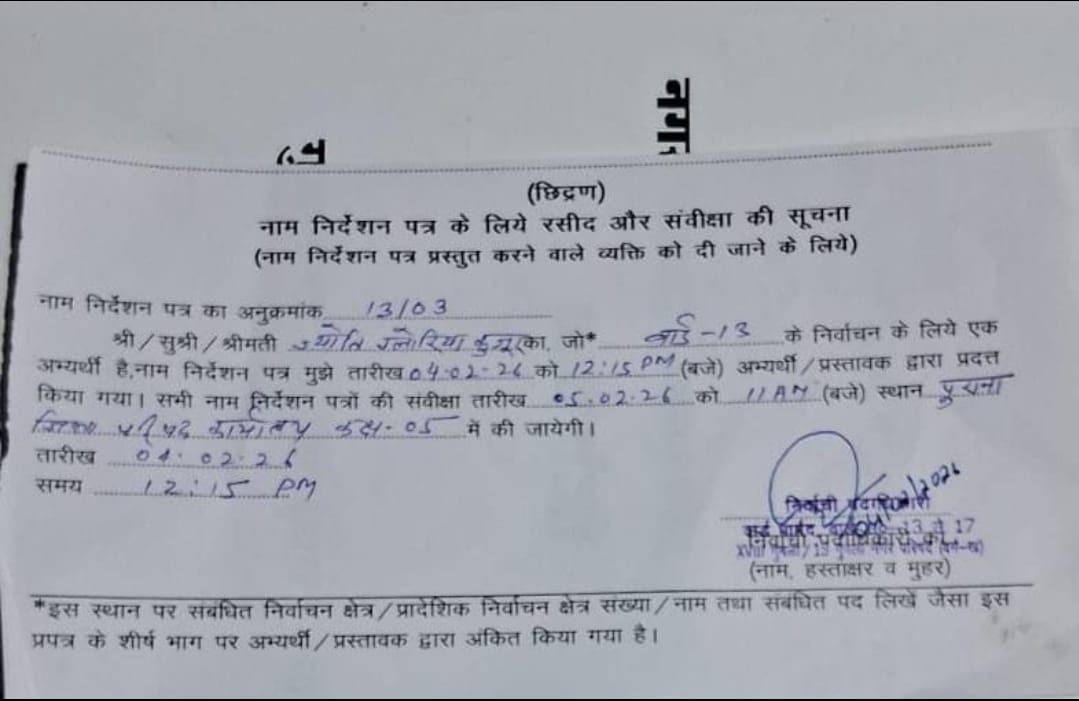 नगर
(छिद्रण)
नाम निर्देशन पत्र के लिये रसीद और संवीक्षा की सूचना
(नाम निर्देशन पत्र प्रस्तुत करने वाले व्यक्ति को दी जाने के लिये)
नाम निर्देशन पत्र का अनुक्रमांक 13/03
श्री/सुश्री/श्रीमती ज्योति ग्लोरिया कुजूर का, जो* वार्ड-13 के निर्वाचन के लिये एक
अभ्यर्थी है,नाम निर्देशन पत्र मुझे तारीख 04.02.26 को 12:15 PM (बजे) अभ्यर्थी/प्रस्तावक द्वारा प्रदत्त
किया गया। सभी नाम निर्देशन पत्रों की संवीक्षा तारीख 05.02.26 को 11 AM (बजे) स्थान पुराना
जिला परिषद कार्यालय कक्ष-05 में की जायेगी।
तारीख 04.02.26
समय 12:15 PM
निर्वाची पदाधिकारी
13 से 17
निर्वाची पदाधिकारी का
(नाम, हस्ताक्षर व मुहर)
*इस स्थान पर संबंधित निर्वाचन क्षेत्र/प्रादेशिक निर्वाचन क्षेत्र संख्या/नाम तथा संबंधित पद लिखें जैसा इस
प्रपत्र के शीर्ष भाग पर अभ्यर्थी/प्रस्तावक द्वारा अंकित किया गया है।